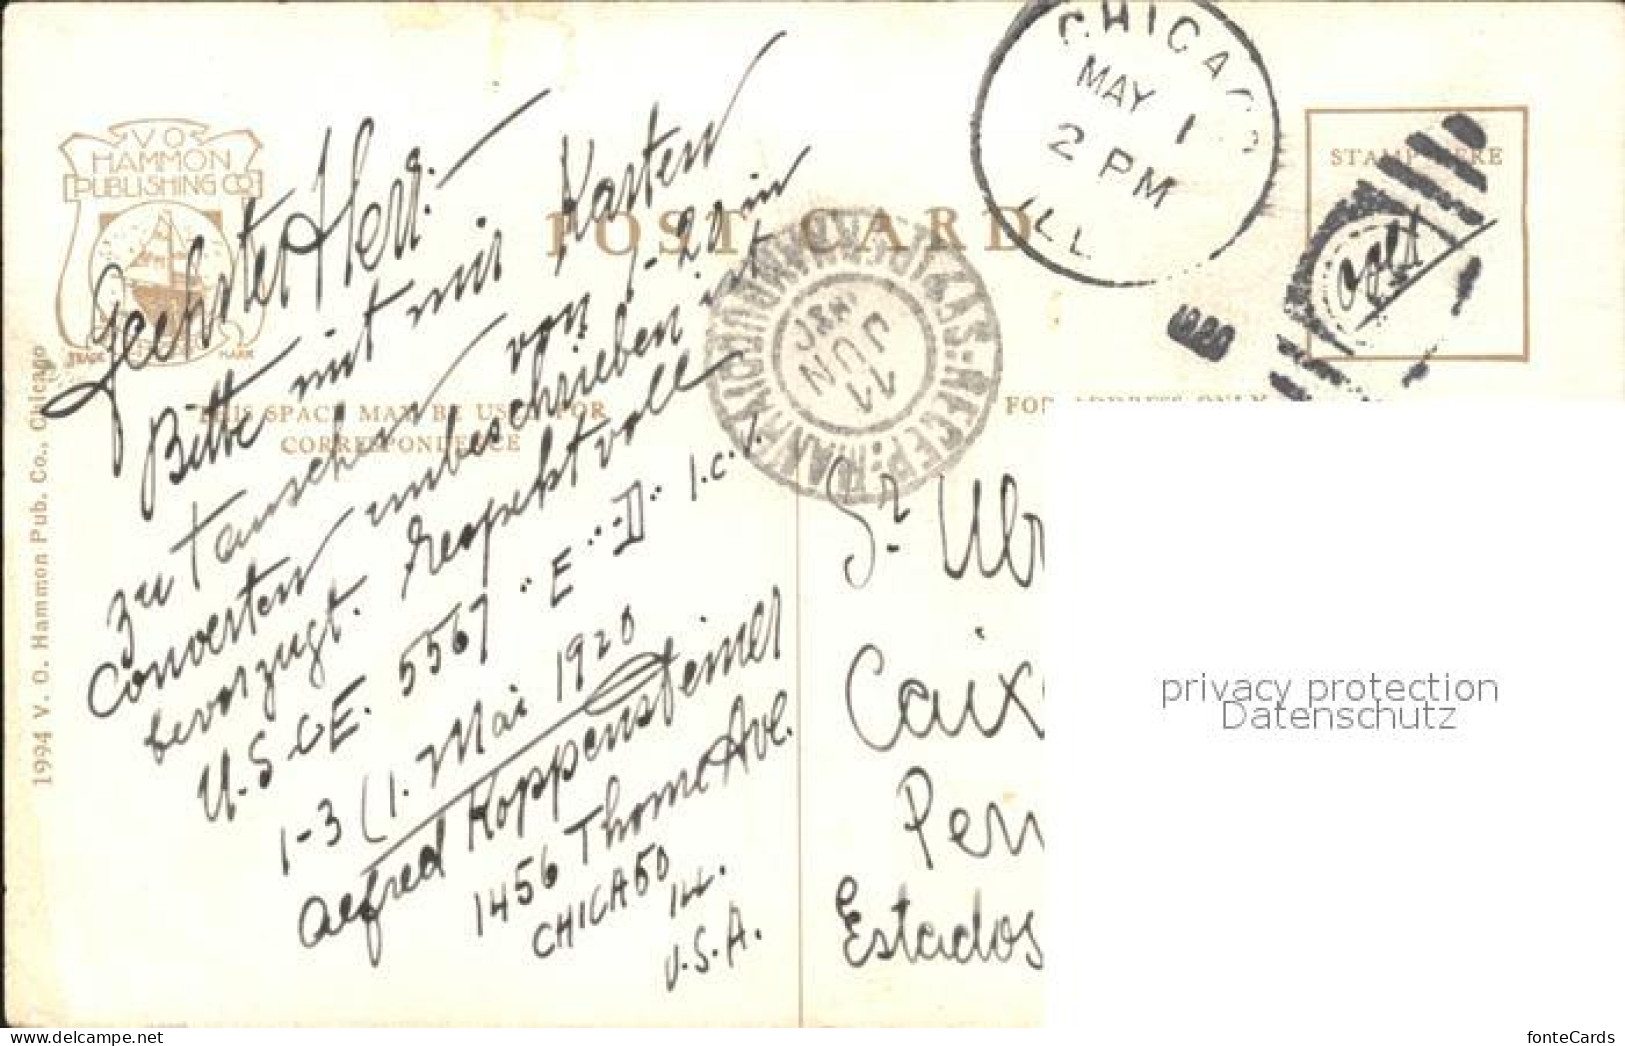 V O
HAMMON
PUBLISHING CO
TRADE MARK
POST CARD
THIS SPACE MAY BE USED FOR
CORRESPONDENCE
1994 V. O. Hammon Pub. Co., Chicago
Geehrter Herr.
Bitte mit mir Karten
zu tauschen von
Converten unbeschrieben ist
bevorzugt. Respektvoll
U.S. 5567 E
1-3 (1. Mai 1920
Alfred Koppensteiner
1456 Thome Ave.
CHICAGO
Ill.
U.S.A.
CHICAGO
MAY 1
2 PM
ILL.
STAMP HERE
FOR ADDRESS ONLY
JUN
11
Sr.
Caix
Pern
Estados
privacy protection
Datenschutz
delcampe.net
fonteCards